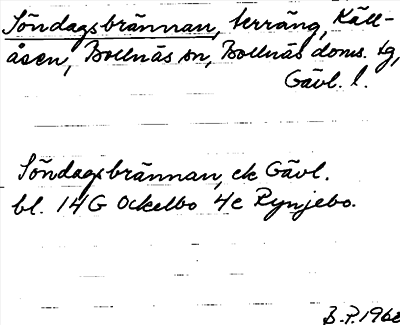 Söndagsbrännan, terräng, Käll-
åsen, Bollnäs sn, Bollnäs doms. tg,
Gävl. l.
Söndagsbrännan, ek Gävl.
bl. 14G Ockelbo 4e Rynjebo.
B.P. 1968